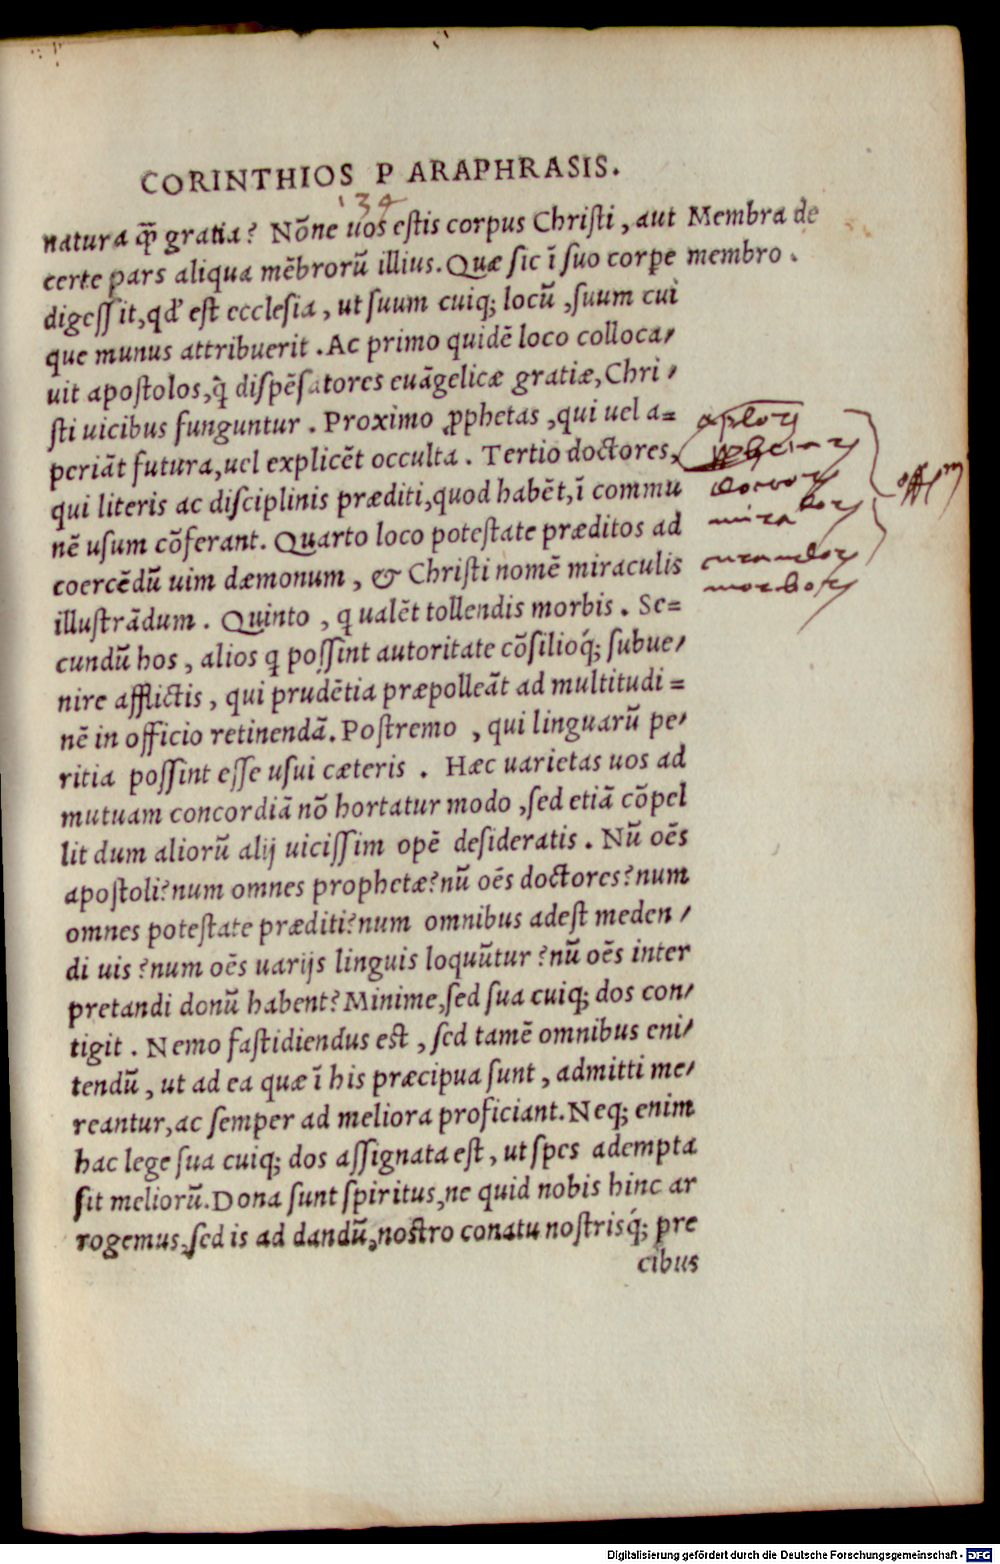 CORINTHIOS P ARAPHRASIS.
134
natura q̄ꝫ gratia? Nōne uos eſtis corpus Chriſti, aut Membra de
certe pars aliqua mēbrorū illius. Quæ ſic ī ſuo corpe membro.
digeſſit, qd' eſt eccleſia, ut ſuum cuiqꝫ locū, ſuum cui
que munus attribuerit. Ac primo quidē loco colloca/
uit apoſtolos, q̄ diſpēſatores euāgelicæ gratiæ, Chri/
ſti uicibus funguntur. Proximo ꝓphetas, qui uel a=
periāt futura, uel explicēt occulta. Tertio doctores,
qui literis ac diſciplinis præditi, quod habēt, ī commu
nē uſum cōferant. Quarto loco poteſtate præditos ad
coercēdū uim dæmonum, & Chriſti nomē miraculis
illuſtrādum. Quinto, q ualēt tollendis morbis. Se=
cundū hos, alios q poſſint autoritate cōſilioq́ꝫ ſubue/
nire afflictis, qui prudētia præpolleāt ad multitudi=
nē in officio retinendā. Poſtremo, qui linguarū pe/
ritia poſſint eſſe uſui cæteris. Hæc uarietas uos ad
mutuam concordiā nō hortatur modo, ſed etiā cōpel
lit dum aliorū alij uiciſſim opē deſideratis. Nū oēs
apoſtoli? num omnes prophetæ? nū oēs doctores? num
omnes poteſtate præditi? num omnibus adeſt meden/
di uis? num oēs uarijs linguis loquūtur? nū oēs inter
pretandi donū habent? Minime, ſed ſua cuiqꝫ dos con/
tigit. Nemo faſtidiendus eſt, ſed tamē omnibus eni/
tendū, ut ad ea quæ ī his præcipua ſunt, admitti me/
reantur, ac ſemper ad meliora proficiant. Neqꝫ enim
hac lege ſua cuiqꝫ dos aſſignata eſt, ut ſpes adempta
ſit meliorū. Dona ſunt ſpiritus, ne quid nobis hinc ar
rogemus, ſed is ad dandū, noſtro conatu noſtrisq́ꝫ pre
cibus
aploꝝ
doctoꝝ
curandoꝝ
morboꝝ
Digitalisierung gefördert durch die Deutsche Forschungsgemeinschaft - DFG